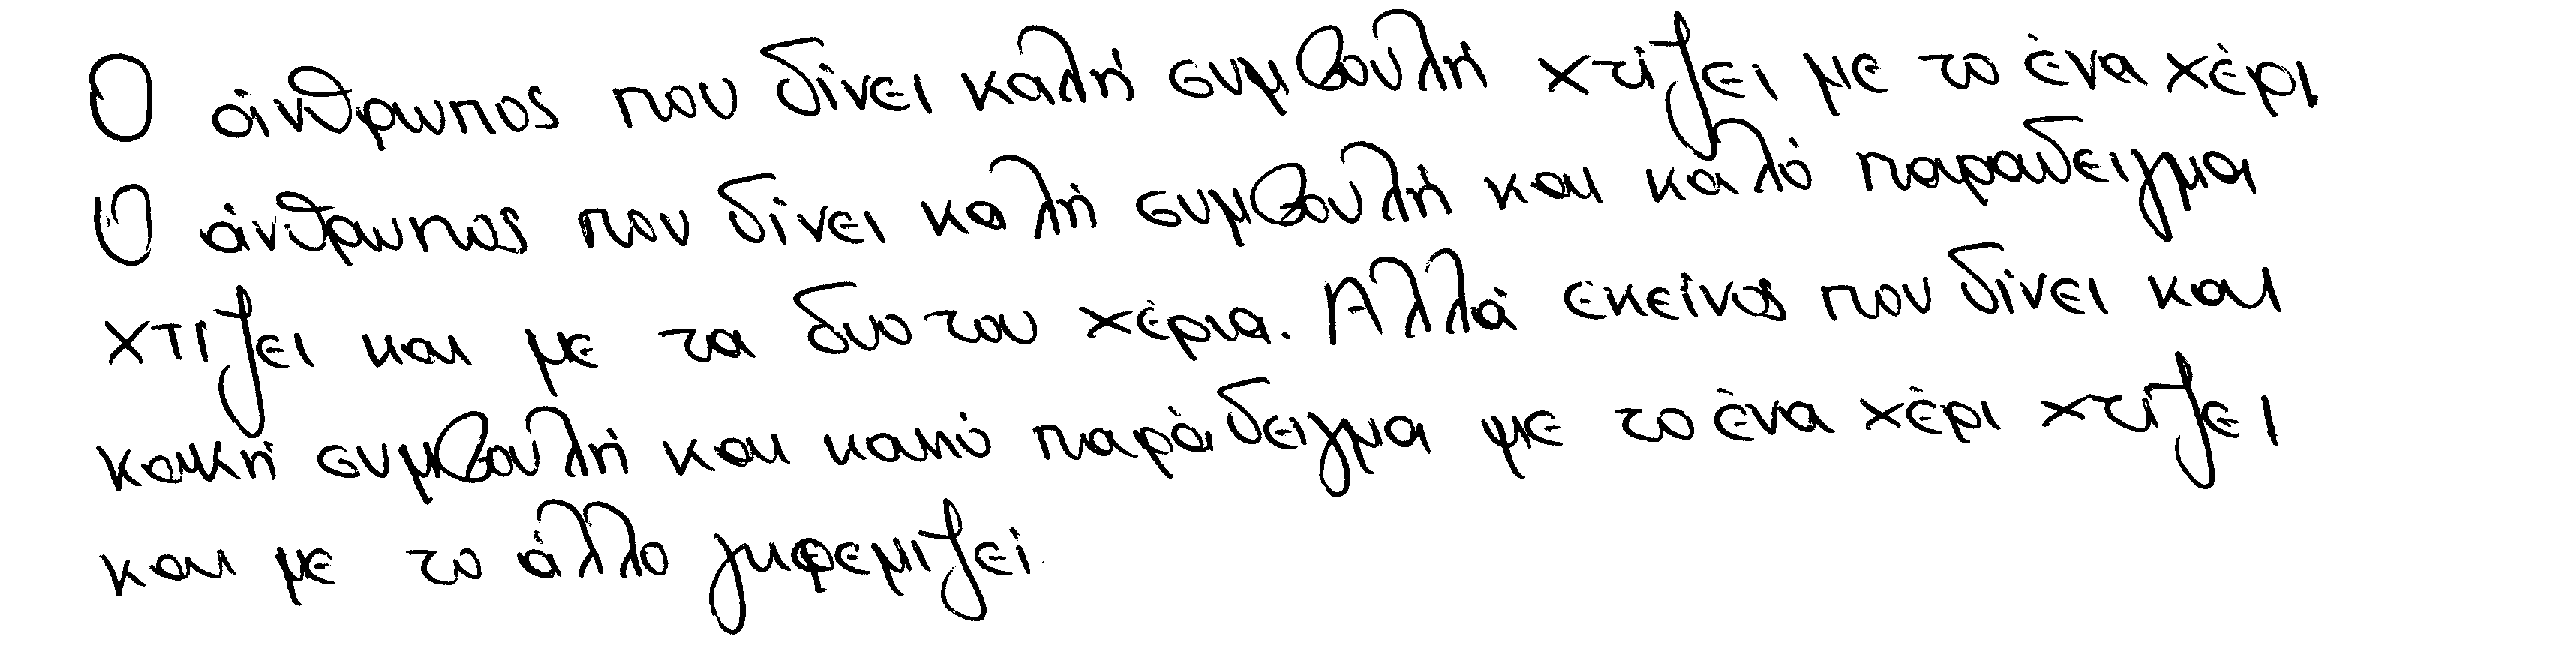 Ο άνθρωπος που δίνει καλή συμβουλή χτίζει με το ένα χέρι
Ο άνθρωπος που δίνει καλή συμβουλή και καλό παραδειγμα
χτιζει και με τα δυο του χέρια. Αλλά εκείνος που δίνει και
κακκή συμβουλή και κακό παράδειγμα με το ένα χέρι χτίζει
και με το άλλο γκρεμιζει